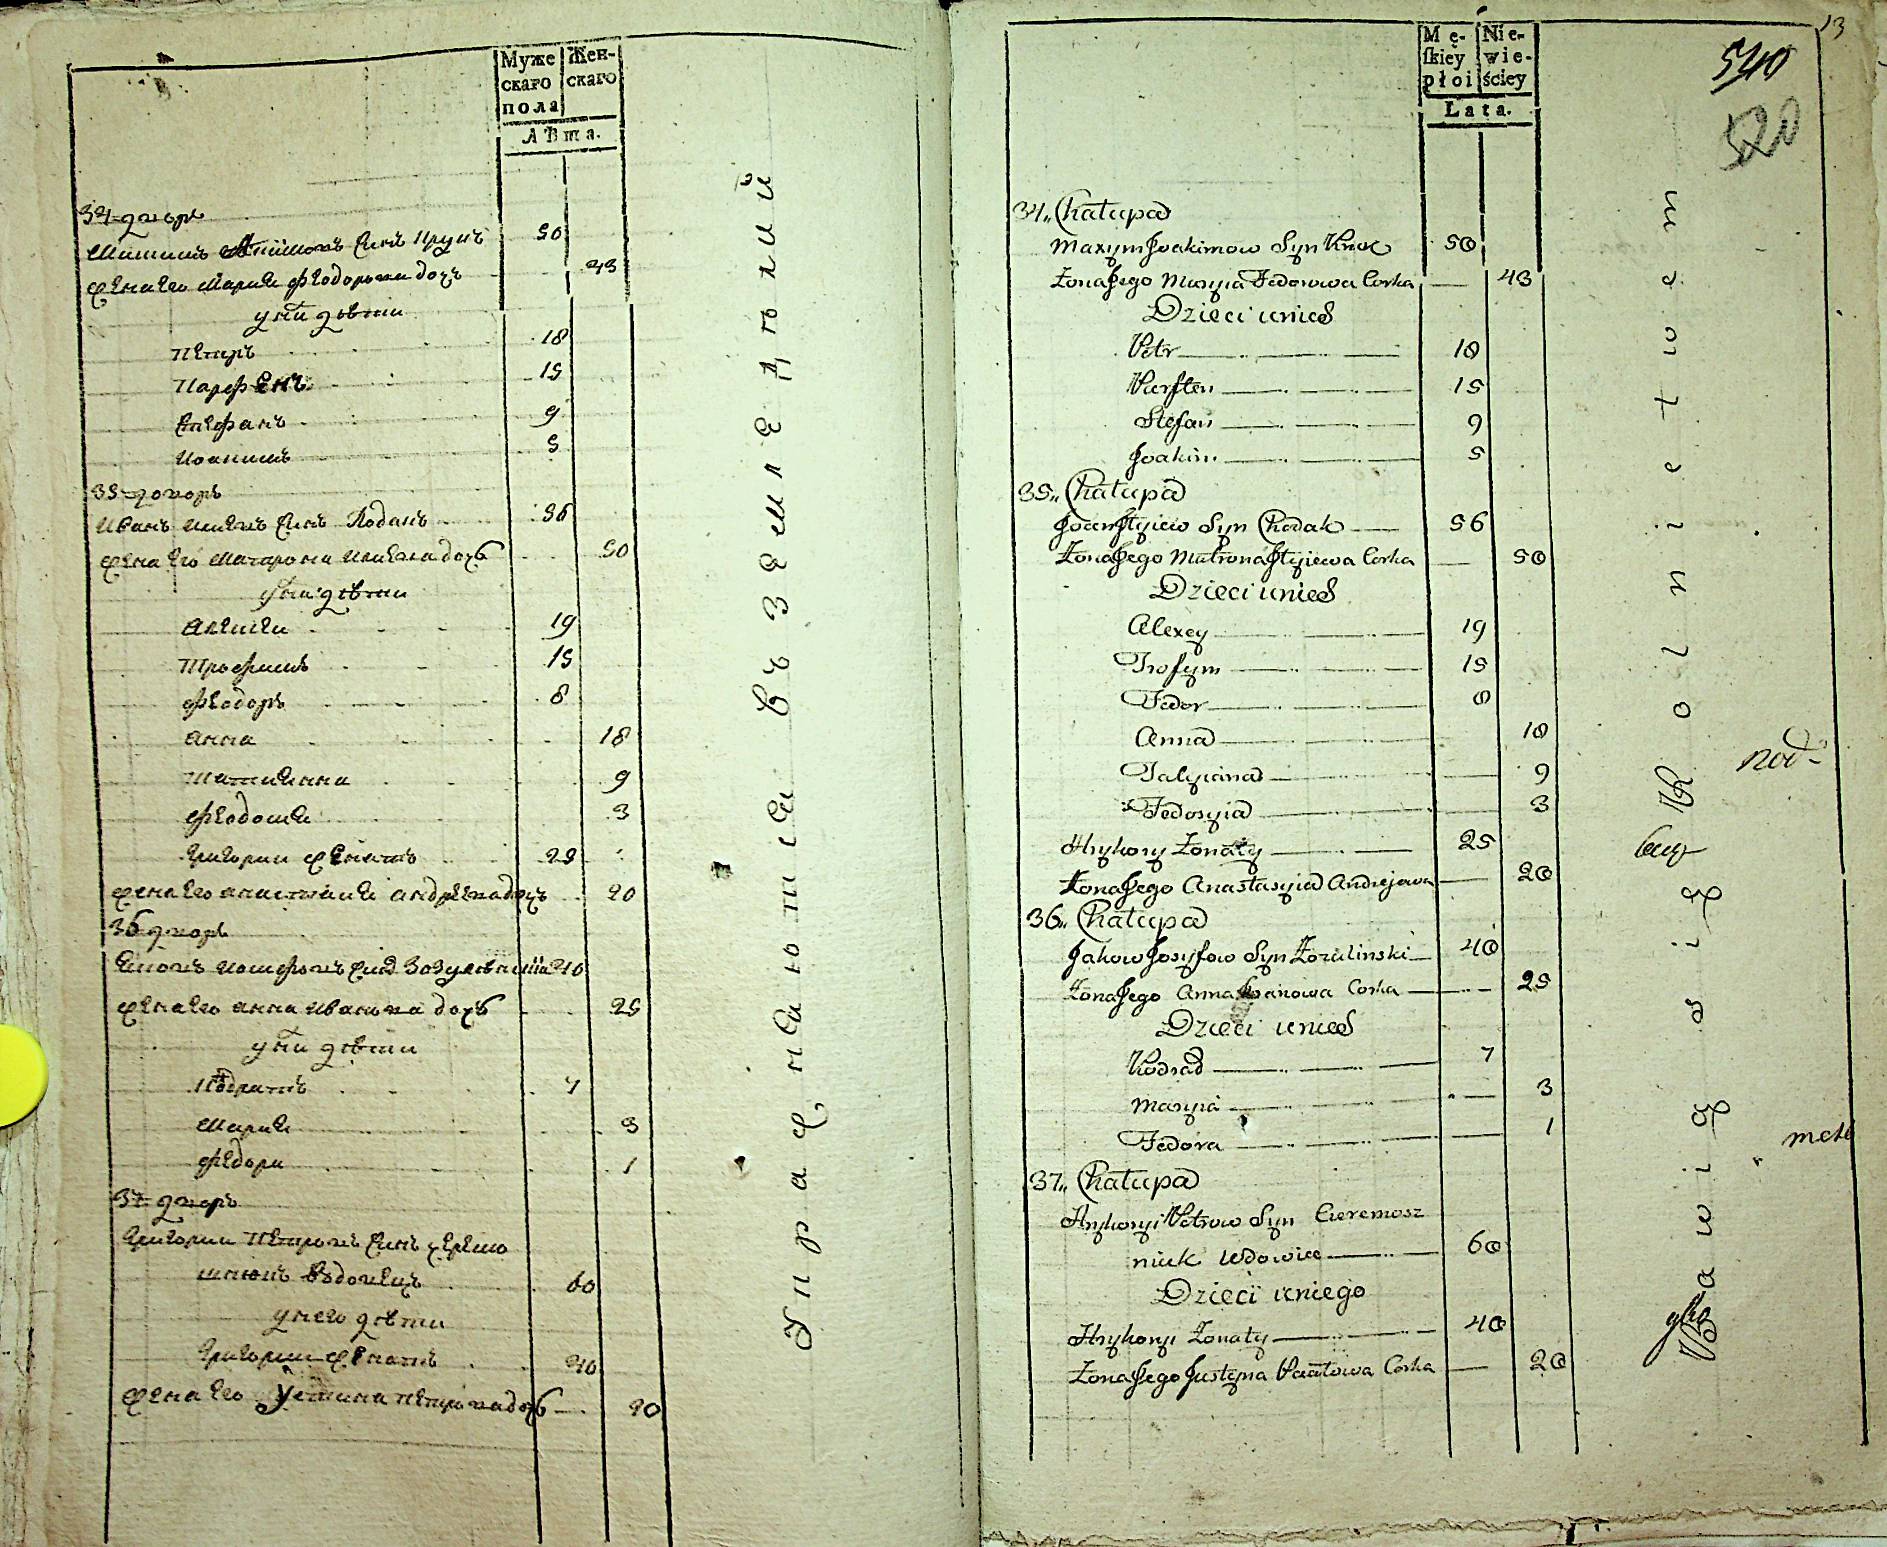 Муже
скаго
пола
Жен-
скаго
Лѣта.
34 дворъ
50
жена его Мария Феодорова дочь 43
у них дѣти
Петръ 18
Парфенъ 15
Стефанъ 9
Иоакимъ 5
35 дворъ
Иванъ сынъ Ходакъ 56
жена его Матрона дочь 50
у них дѣти
Алексеи 19
Трофимъ 15
Феодоръ 8
Анна 18
Татианна 9
Феодосия 3
Григории женатъ 25
жена его Анастасия Андреева дочь 20
36 дворъ
Яковъ Иосифовъ сынъ 40
жена его Анна Иванова дочь 25
у них дѣти
Кодратъ 7
Мария 3
Федора 1
37 дворъ
Григории Петровъ сынъ Черемо
шнюкъ вдовецъ 60
у него дѣти
Григории женатъ 40
жена его Устина Петрова дочь 20
Упражняются въ земледелии
13
Mę-
skiey
płoi
Nie-
wie-
ściey
Lata.
540
520
34,, Chałupa
Maxym Joakimow Syn Kruk 50
Żona Jego Maryia Fedorowa Corka 43
Dzieci u nich
Petr 18
Parften 15
Stefan 9
Joakim 5
35,, Chałupa
Syn Chodak 56
Żona Jego Matrona Corka 50
Dzieci u nich
Alexey 19
Trofym 15
Fedor 8
Anna 18
Tatyiana 9
Fedosyia 3
Hryhory Żonaty 25
Żona Jego Anastasyia Andrejowa 20
36,, Chałupa
Jakow Josyfow Syn Zozulinski 40
Żona Jego Anna Iwanowa Corka 25
Dzieci u nich
Kodrad 7
Maryia 3
Fedora 1
37,, Chałupa
Hryhoryi Petrow Syn Czeremosz
niuk Wdowiec 60
Dzieci u niego
Hryhoryi Żonaty 40
Żona Jego Justyna Corka 20
Bawią się Rolnictwem